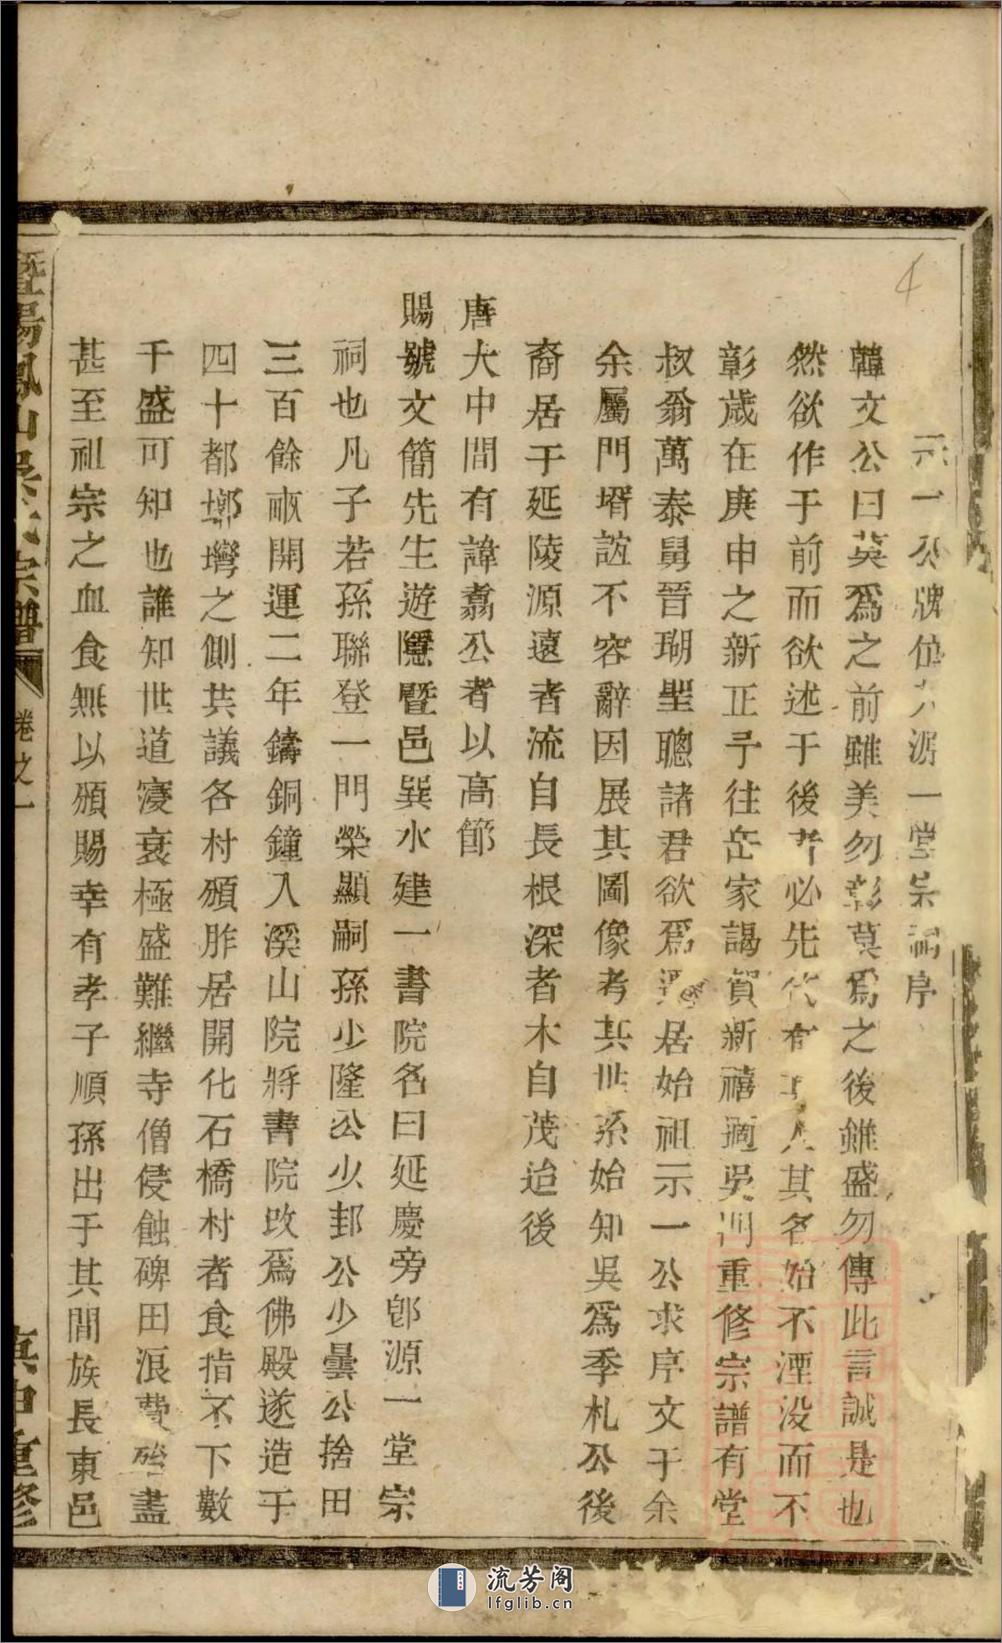 示一公牌位六派一堂宗祠序
韓文公曰英爲之前雖美勿彰莫爲之後雖盛勿傳此言誠是也
然欲作于前而欲述于後者必先代有其人其名始不湮没而不
彰歲在庚申之新正予往岳家謁賀新禧適吳門重修宗譜有堂
叔翁萬泰舅晉瑚聖聰諸君欲爲遷居始祖示一公求序文于余
余屬門壻誼不容辭因展其圖像考其世系始知吳爲季札公後
裔居于延陵源遠者流自長根深者木自茂迨後
唐大中間有諱翥公者以高節
賜號文簡先生遊隱暨邑巽水建一書院名曰延慶旁卽源一堂宗
祠也凡子若孫聯登一門榮顯嗣孫少隆公少邽公少曇公捨田
三百餘畝開運二年鑄銅鐘入溪山院將書院改爲佛殿遂造于
四十都塢灣之側共議各村頒胙居開化石橋村者食指不下數
千盛可知也誰知世道寖衰極盛難繼寺僧侵蝕碑田浪費殆盡
甚至祖宗之血食無以頒賜幸有孝子順孫出于其間族長東邑
暨陽鳳山吳氏宗譜 卷之一 庚申重修
4
流芳阁
lfglib.cn